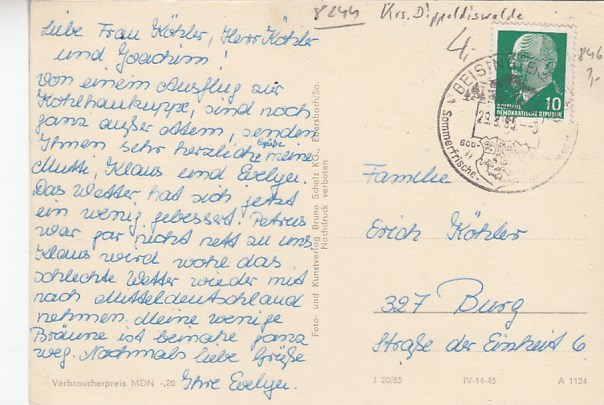 8244 Krs. Dippoldiswalde
4,-
846
3,-
Liebe Frau Köhler, Herr Köhler
und Joachim!
Von einem Ausflug zur
Kohlhaukuppe, sind noch
ganz außer Atem, senden
Ihnen sehr herzliche Grüße meine
Mutti, Klaus und Evelyn.
Das Wetter hat sich jetzt
ein wenig gebessert. Petrus
war gar nicht nett zu uns.
Klaus wird wohl das
schlechte Wetter wieder mit
nach Mitteldeutschland
nehmen. Meine wenige
Bräune ist beinahe ganz
weg. Nochmals liebe Grüße
Ihre Evelyn.
Verbraucherpreis MDN -,20
Foto- und Kunstverlag Bruno Scholz KG., Ebersbach/Sa.
Nachdruck verboten
DEUTSCHE
DEMOKRATISCHE REPUBLIK
10
GEISING
Sommerfrische
Familie
Erich Köhler
327 Burg
Straße der Einheit 6
J 20/65 IV-14-45 A 1124